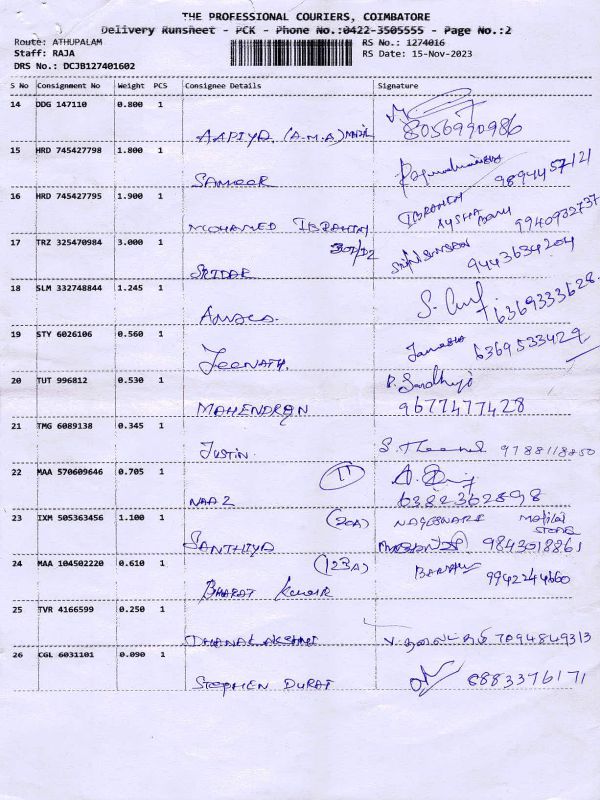 THE PROFESSIONAL COURIERS, COIMBATORE
Delivery Runsheet - PCK - Phone No.:0422-3505555 - Page No.:2
Route: ATHUPALAM RS No.: 1274016
Staff: RAJA RS Date: 15-Nov-2023
DRS No.: DCJB127401602
S No Consignment No Weight PCS Consignee Details Signature
14 DDG 147110 0.800 1
AAPIYA (A.M.A) 8056990986
15 HRD 745427798 1.800 1
SAMEER 9894457121
16 HRD 745427795 1.900 1 IBRAHIM
MOHAMED IBRAHIM AYSHA BANU 9940932737
17 TRZ 325470984 3.000 1
SRIDAR 9443634204
18 SLM 332748844 1.245 1
6369333628
19 STY 6026106 0.560 1
JEENATH. 6369533429
20 TUT 996812 0.530 1 P. Sandhiya
MAHENDRAN 9677477428
21 TMG 6089138 0.345 1
JUSTIN. 9788118850
22 MAA 570609646 0.705 1 (11)
NAAZ 6382362898
23 IXM 505363456 1.100 1 (20A) NAGESWARI
STORE
SANTHIYA 9843018861
24 MAA 104502220 0.610 1 (123A)
BHARAT Kumar 9942244660
25 TVR 4166599 0.250 1
DHANALAKSHMI 7094849313
26 CGL 6031101 0.090 1
STEPHEN DURAI 8883376171